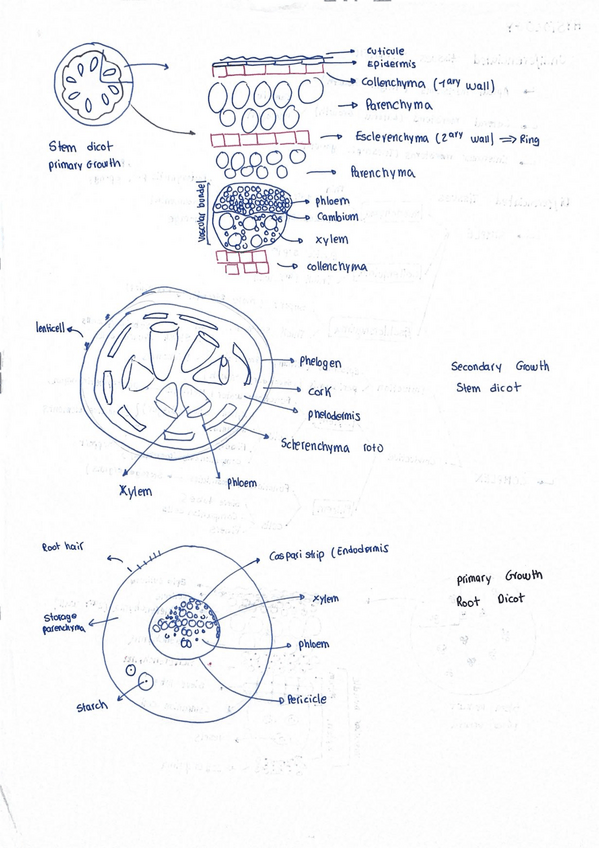 cuticule
Epidermis
Collenchyma (1ary wall)
Parenchyma
Esclerenchyma (2ary wall) ⇒ Ring
Parenchyma
Stem dicot
primary Growth
Vascular bundel
phloem
Cambium
xylem
collenchyma
lenticell
phelogen
cork
phelodermis
Scherenchyma roto
Xylem
phloem
Secondary Growth
Stem dicot
Root hair
Caspari strip (Endodermis
xylem
Storage
parenchyma
phloem
Starch
Pericicle
primary Growth
Root Dicot